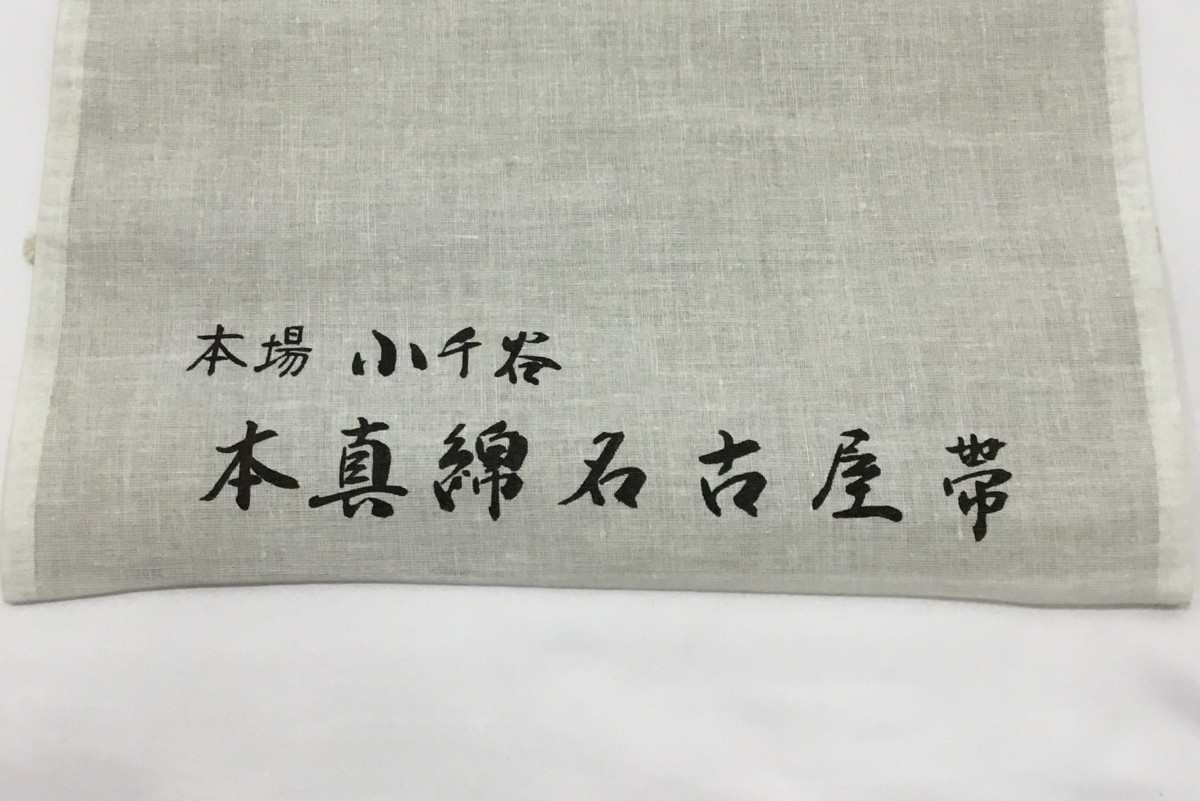 本場 小千谷
本真綿名古屋帯